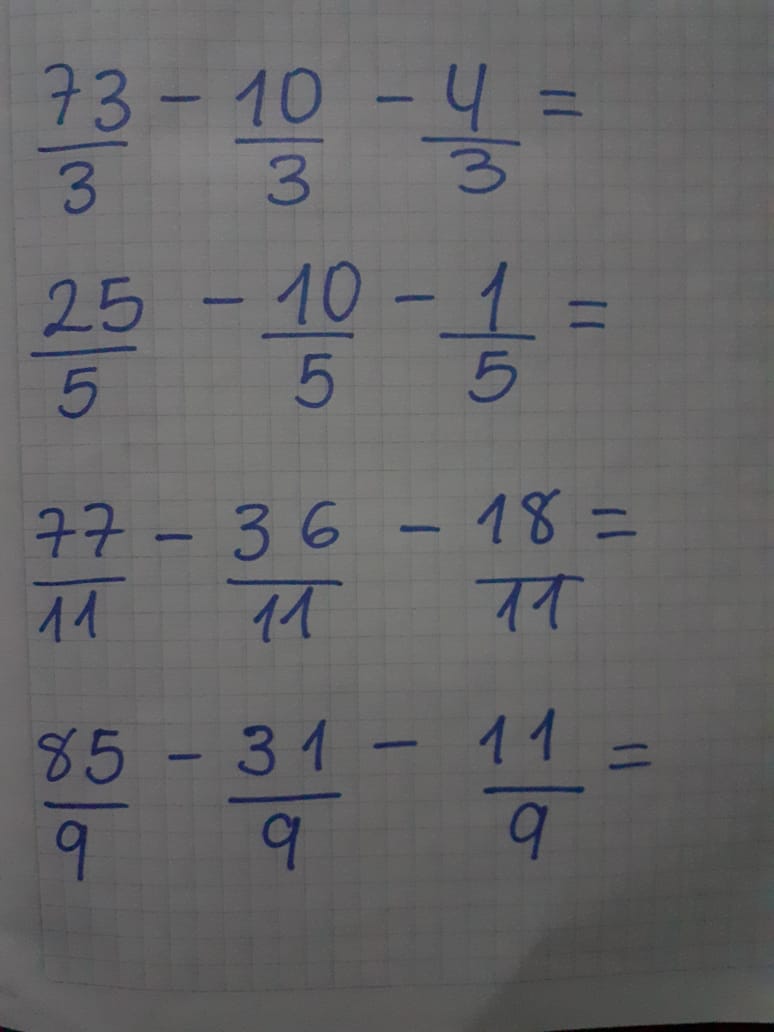 73/3 - 10/3 - 4/3 =
25/5 - 10/5 - 1/5 =
77/11 - 36/11 - 18/11 =
85/9 - 31/9 - 11/9 =